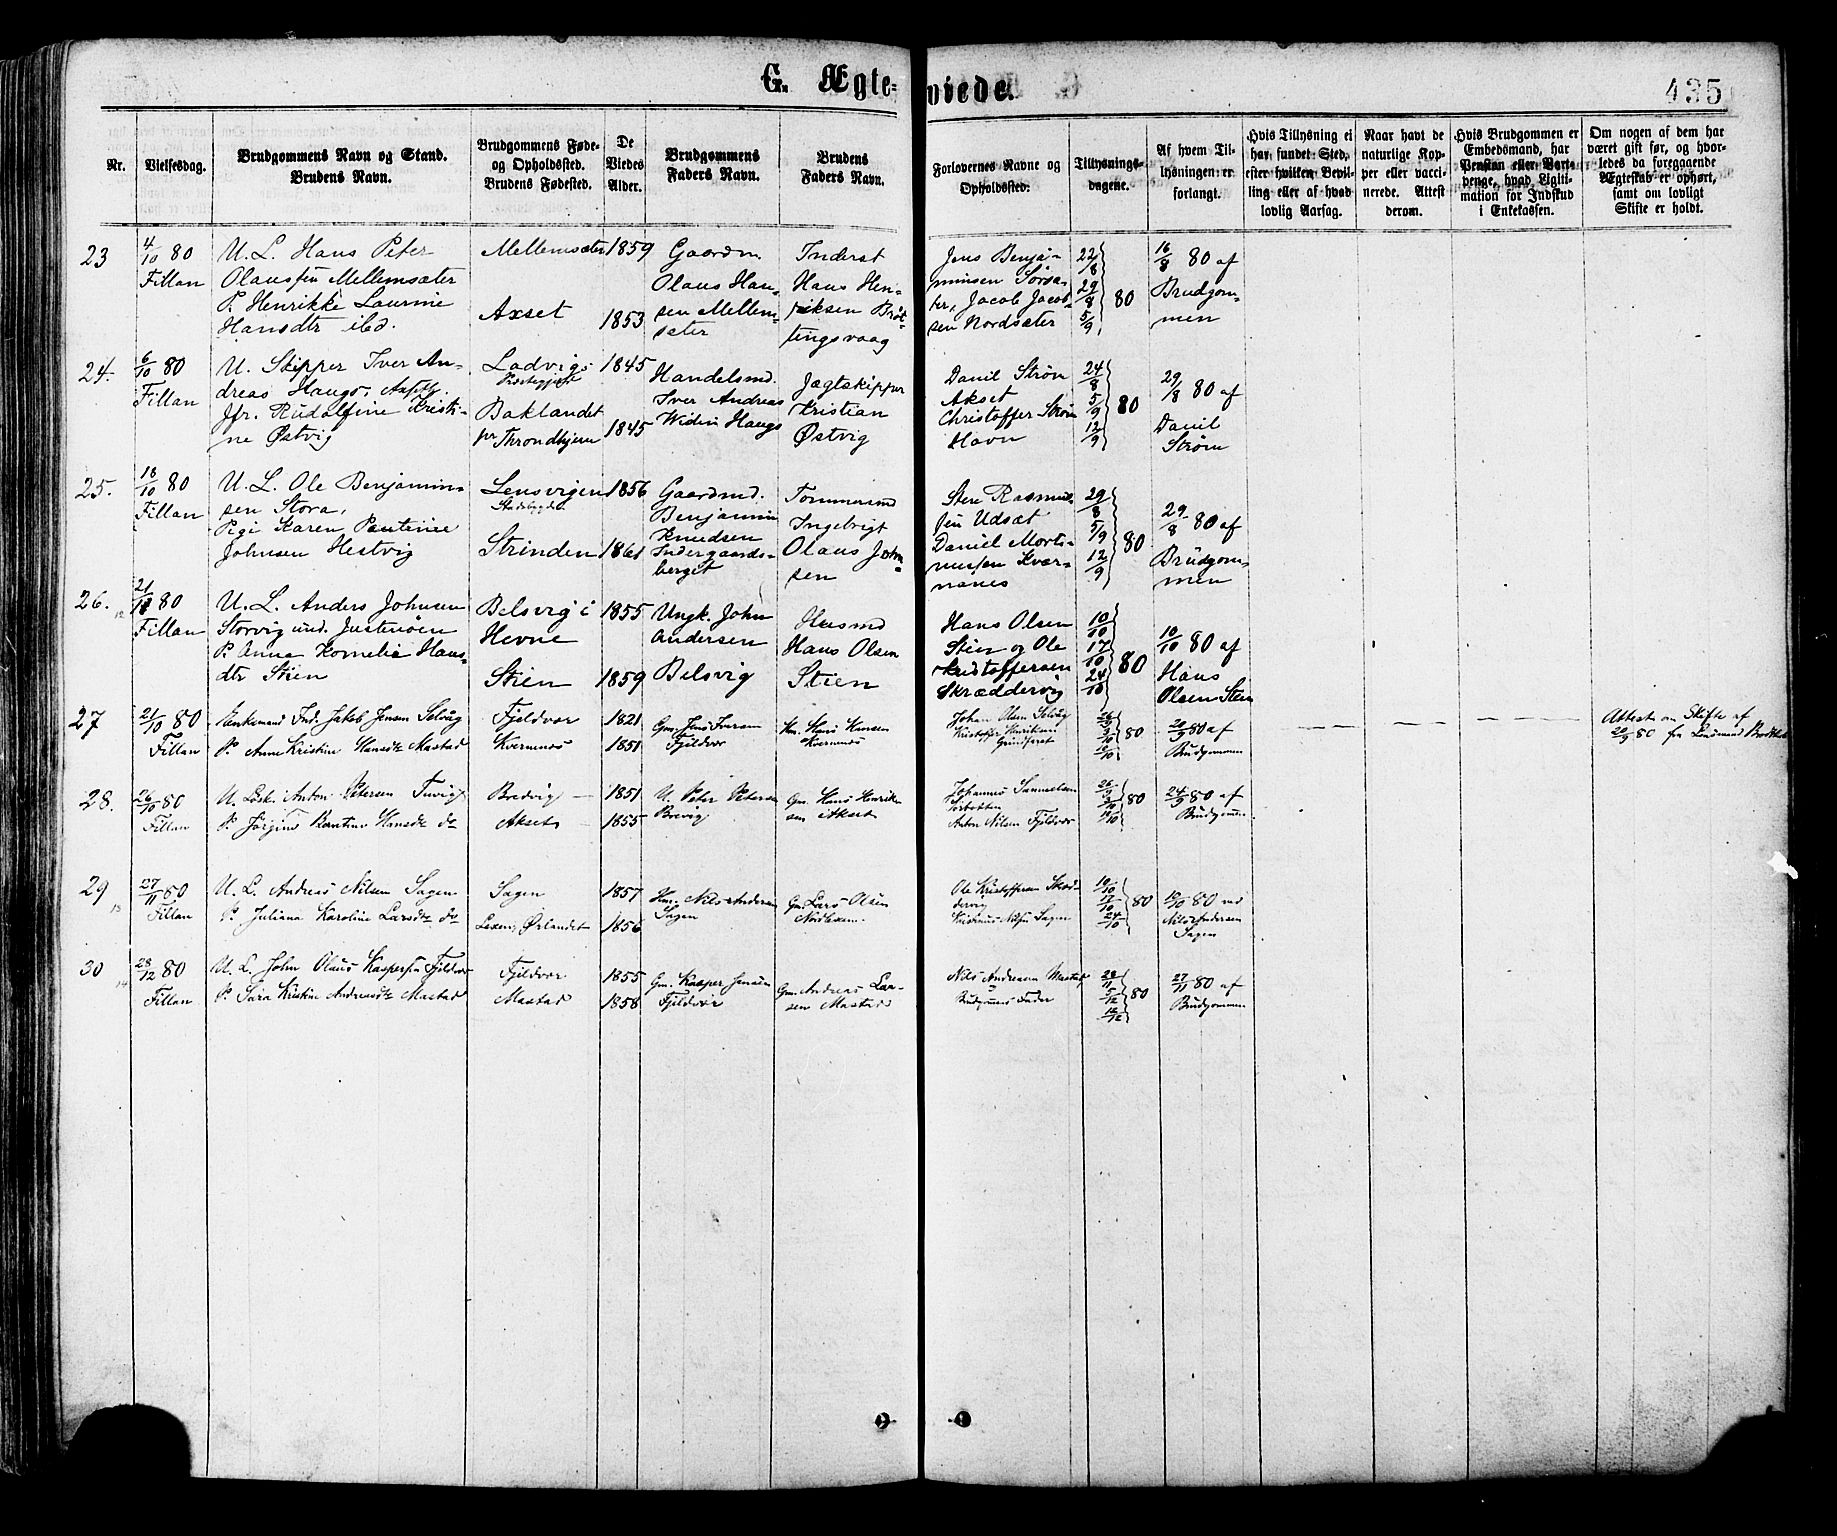 G. Ægte- viede.
435
Nr.
Vielsesdag.
Brudgommens Navn og Stand.
Brudens Navn.
Brudgommens Føde-
og Opholdssted.
Brudens Fødested.
De
Viedes
Alder.
Brudgommens
Faders Navn.
Brudens
Faders Navn.
Forlovernes Navne og
Opholdssted.
Tillysnings-
dagene.
Af hvem Til-
lysningen er
forlangt.
Hvis Tillysning ei
har fundet Sted,
efter hvilken Bevil-
ling eller af hvad
lovlig Aarsag.
Naar havt de
naturlige Kop-
per eller vacci-
nerede. Attest
derom.
Hvis Brudgommen er
Embedsmand, har
Pension eller Vart-
penge, hvad Ligiti-
mation for Indskud
i Enkekassen.
Om nogen af dem har
været gift før, og hvor-
ledes da foregaaende
Ægteskab er ophørt,
samt om lovligt
Skifte er holdt.
23
4/10 80
Fillan
U. L. Hans Peter
Olaussen Mellemsæter
P. Henrikke Laurine
Hansdtr ibd.
Mellemsæter
Axset
1859
1853
Gaardm.
Olaus Han-
sen Mellem-
sæter
Inderst
Hans Hen-
riksen Brøt-
tingsvaag
Jens Benja-
minsen Sørsæ-
ter, Jacob Jacob-
sen Nordsæter
22/8
29/8
5/9
80
16/8 80 af
Brudgom-
men
24.
6/10 80
Fillan
U. Skipper Iver An-
dreas Haugs,
Jfr. Rudolfine Kristi-
ne Østvig
Ladvigs
Præstegjeld
Baklandet
pr Throndhjem
1845
1845
Handelsmd.
Iver Andreas
Widin Haugs
Jægtskipper
Kristian
Østvig
Danil Strøm
Akset
Christoffer Strøm
Havn
24/8
5/9
12/9
80
29/8 80 af
Danil
Strøm
25.
18/10 80
Fillan
U. L. Ole Benjamin-
sen Stora,
Pige Karen Pauline
Johnsen Hestvig
Lensvigen
Stadsbygden
Strinden
1856
1861
Gaardmd.
Benjamin
Knudsen
Indergaards-
berget
Tømmermd
Ingebrigt
Olaus John-
sen
Sten Rasmus-
sen Udsæt
Daniel Morti-
nussen Kvær-
nanes
29/8
5/9
12/9
80
29/8 80 af
Brudgom-
men
26.
12
80
Fillan
U. L. Anders Johnsen
Storvig und. Justenøen
P. Anna Kornelia Hans-
dtr Stien
Belsvig i
Hevne
Stien
1855
1859
Ungk. John
Andersen
Belsvig
Husmd
Hans Olsen
Stien
Hans Olsen
Stien og Ole
Kristoffersen
Skræddervig
10/10
17/10
24/10
80
10/10 80 af
Hans
Olsen Stien
27
21/10 80
Fillan
Enkemand Ind. Jakob Jensen Selvåg
P. Anne Kristine Hansdtr Mastad
Fjeldvær
Kvernnæs
1821
1851
Gm. Jens Iversen
Fjeldvær
Hm. Hans Hansen
Kvernnæs
Johan Olsen Selvåg
Kristoffer Henriksen
26/9
3/10
10/10
80
20/9 80 af
Brudgommen
Attest om Skifte af
20/9 80 fra Lensmand
28.
26/10 80
Fillan
U. Løsk. Anton Petersen Tuvig
P. Jørgine Hansdtr do
Bredvig
Akset
1851
1855
U. Peter Petersen
Brevig
Gm. Hans Henrik-
sen Akset
Johannes Samuelsen
Sørbotten
Anton Nilsen Fjeldvær
26/9
3/10
10/10
80
24/9 80 af
Brudgommen.
29
13
27/11 80
Fillan
U. L. Andreas Nilsen Sagen
P. Juliana Karoline Larsdtr do
Sagen
Lexen, Ørlandet
1857
1856
Hm. Nils Andersen
Sagen
Gm. Lars Olsen
Nordlexen.
Ole Kristoffersen Skræd-
dervig
Kristinus Nilsen Sagen
10/10
17/10
24/10
80
10/10 80 ved
Nils Andersen
Sagen
30
14
28/12 80
Fillan
U. L. John Olaus Kaspersen Fjeldvær
P. Sara Kristine Andreasdtr Mastad
Fjeldvær
Mastad
1855
1858
Gm. Kasper Jensen
Fjeldvær
Gm. Andreas Lar-
sen Mastad
Nils Andreasen Mastad
Brudgommens Fader
28/11
5/12
12/12
80
27/11 80 af
Brudgommen